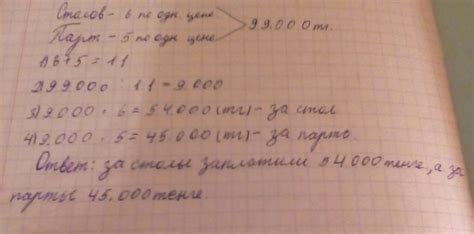 Столов - 6 по одн. цене
99.000 тг.
Парт - 5 по одн. цене
1) 6+5=11
2) 99.000 : 11 = 9.000
3) 9.000 · 6 = 54.000 (тг) - за стол
4) 9.000 · 5 = 45.000 (тг) - за парты.
Ответ: за столы заплатили 54.000 тенге, а за
парты 45.000 тенге.